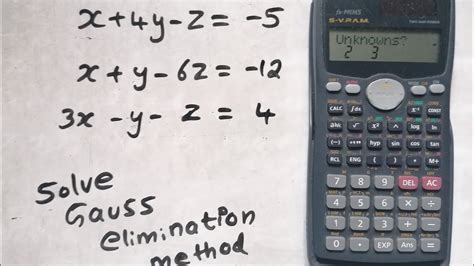 x+4y-z=-5
x+y-6z=-12
3x-y-z=4
Solve
Gauss
elimination
method
S-V.P.A.M.
Unknowns?
2 3
CALC ∫dx
hyp sin cos tan
RCL ENG ( ) , M+
7 8 9 DEL AC
4 5 6 × ÷
1 2 3 + -
0 . EXP Ans =